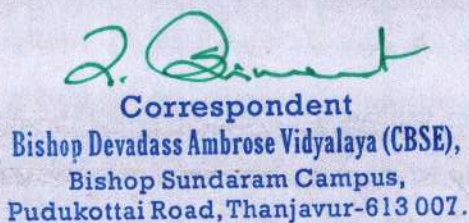 Correspondent
Bishop Devadass Ambrose Vidyalaya (CBSE),
Bishop Sundaram Campus,
Pudukottai Road, Thanjavur-613 007